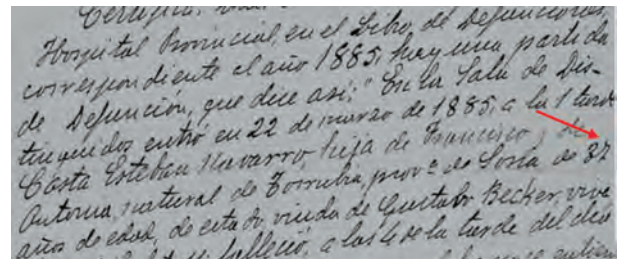 Hospital Provincial, en el Libro de Defunciones,
correspondiente al año 1885, hay una partida
de Defunción, que dice así: "En la Sala de Dis-
tinguidos entró en 22 de marzo de 1885, a la 1 tarde
Casta Esteban Navarro, hija de Francisco y de
Antonia, natural de Torrubia, prov.ª de Soria de 37
años de edad, de estado viuda de Gustavo Becker, vive
falleció, a las 4 de la tarde del día